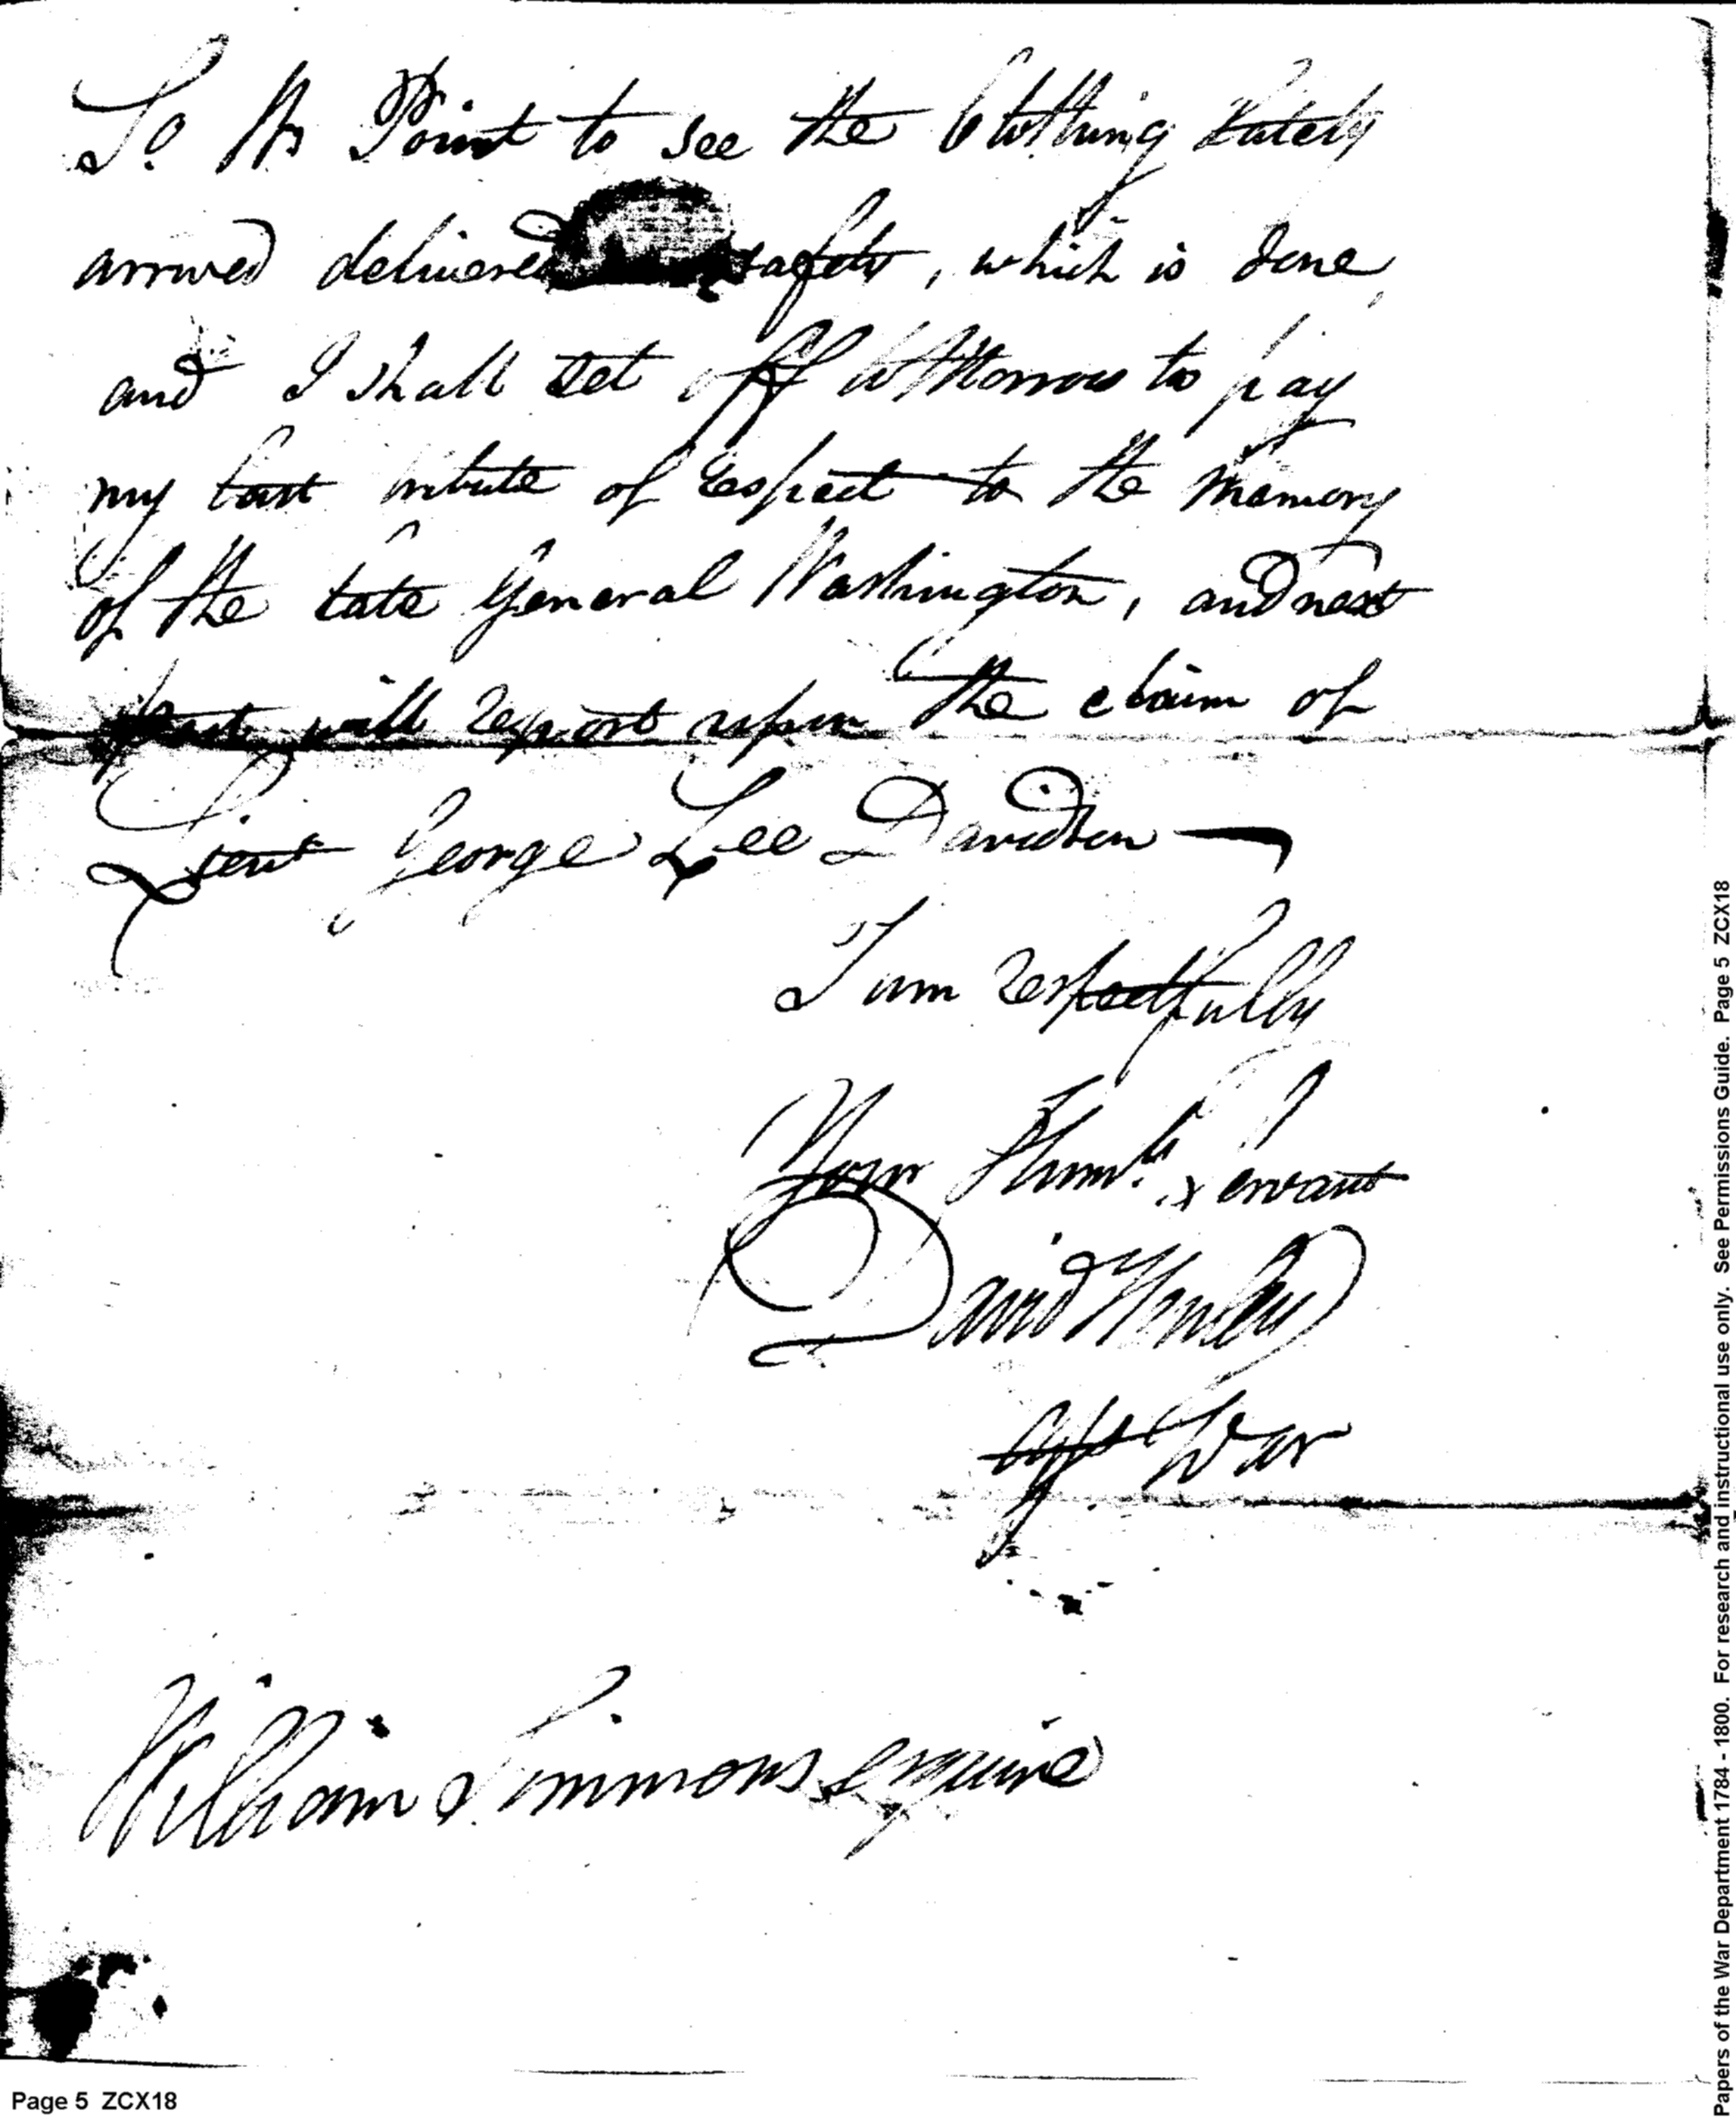 So Wt Point to see the Clothing lately
arrived delivered safely, which is done,
and I shall set off to Morrow to pay
my last tribute of respect to the memory
of the late General Washington, and next
post will report upon the claim of
Lieut George Lee Davidson —
I am respectfully
Your Humble Servant
David Henley
Agt War
William Simmons Esquire
Page 5 ZCX18
Papers of the War Department 1784 - 1800. For research and instructional use only. See Permissions Guide. Page 5 ZCX18